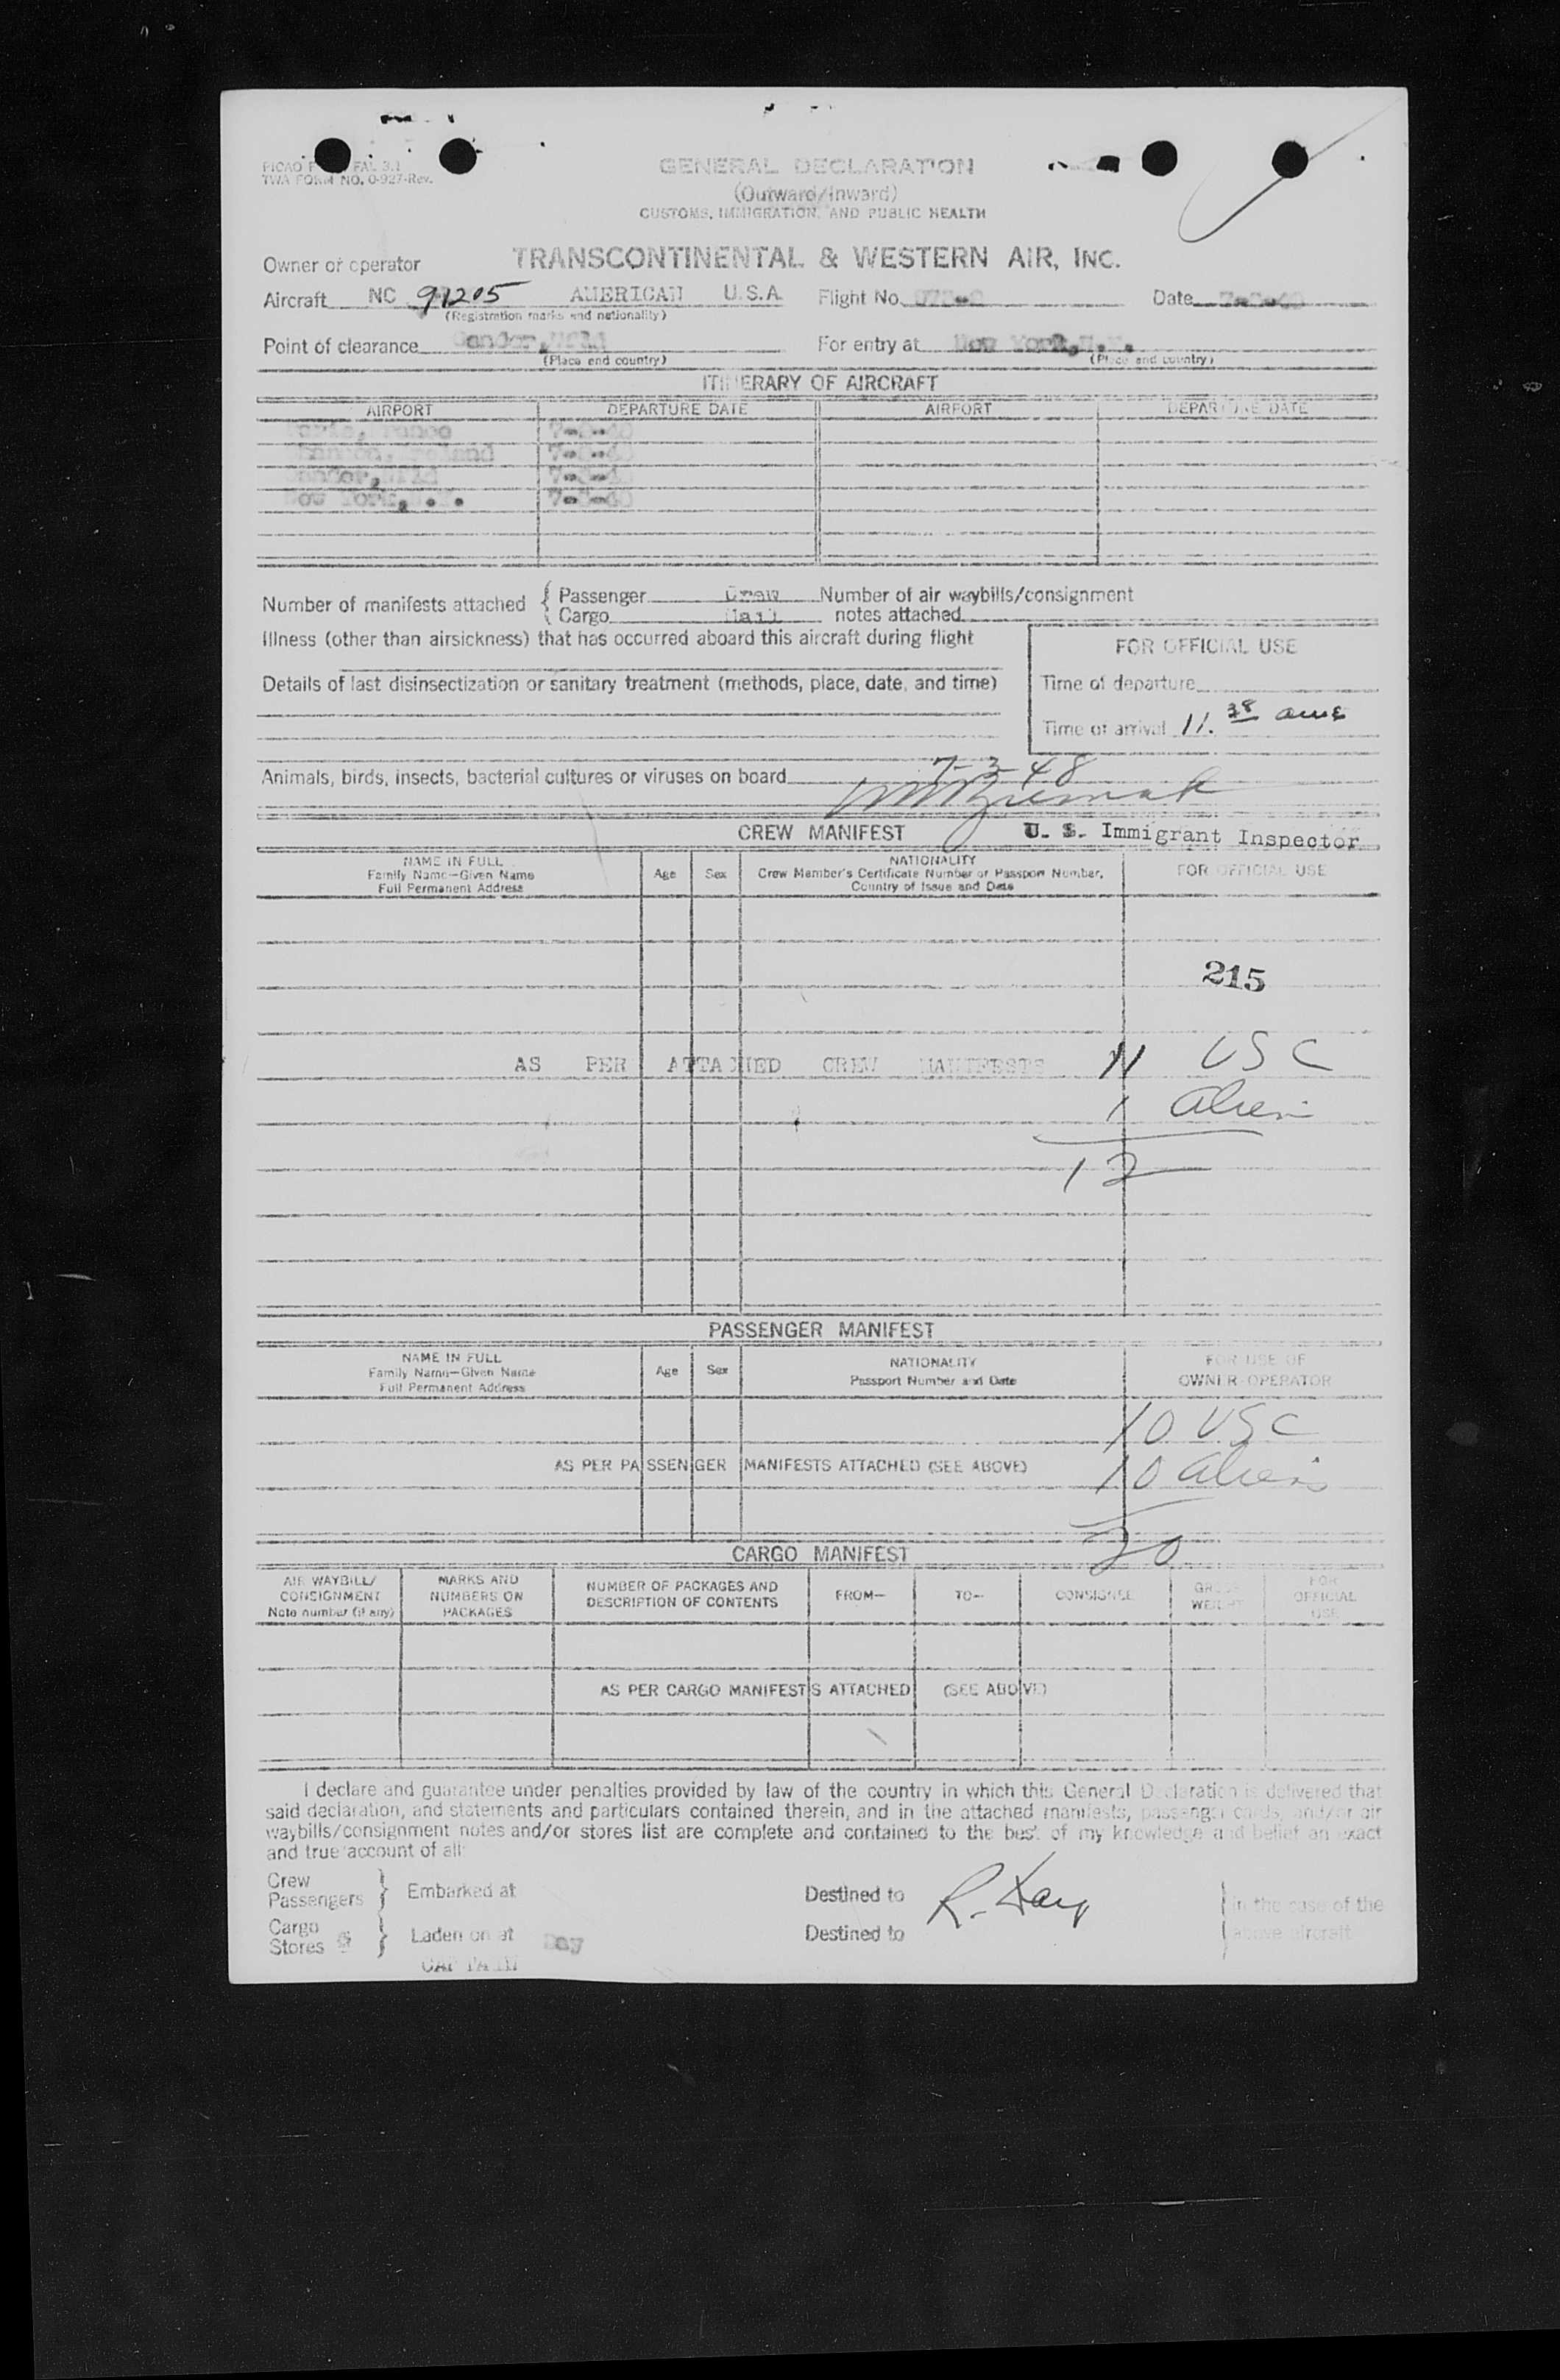 TWA FORM NO. 0-927-Rev.
GENERAL DECLARATION
(Outward/Inward)
CUSTOMS, IMMIGRATION, AND PUBLIC HEALTH
Owner or operator TRANSCONTINENTAL & WESTERN AIR, INC.
Aircraft NC 91205 AMERICAN U.S.A. Flight No. Date
(Registration marks and nationality)
Point of clearance Gander, Nfld For entry at New York, N.Y.
(Place and country) (Place and country)
ITINERARY OF AIRCRAFT
AIRPORT DEPARTURE DATE AIRPORT DEPARTURE DATE
Paris, France
Shannon, Ireland
Gander, Nfld
New York, N.Y.
Number of manifests attached { Passenger Crew Number of air waybills/consignment
Cargo Mail notes attached
Illness (other than airsickness) that has occurred aboard this aircraft during flight
FOR OFFICIAL USE
Details of last disinsectization or sanitary treatment (methods, place, date, and time)
Time of departure
Time of arrival 11.38 am
Animals, birds, insects, bacterial cultures or viruses on board
7-3-48
CREW MANIFEST U. S. Immigrant Inspector
NAME IN FULL
Family Name—Given Name
Full Permanent Address
Age Sex
NATIONALITY
Crew Member's Certificate Number or Passport Number,
Country of Issue and Date
FOR OFFICIAL USE
215
AS PER ATTACHED CREW MANIFESTS 11 USC
1 alien
12
PASSENGER MANIFEST
NAME IN FULL
Family Name—Given Name
Full Permanent Address
Age Sex
NATIONALITY
Passport Number and Date
FOR USE OF
OWNER-OPERATOR
10 USC
AS PER PASSENGER MANIFESTS ATTACHED (SEE ABOVE) 10 aliens
20
CARGO MANIFEST
AIR WAYBILL/
CONSIGNMENT
Note number (if any)
MARKS AND
NUMBERS ON
PACKAGES
NUMBER OF PACKAGES AND
DESCRIPTION OF CONTENTS
FROM— TO— CONSIGNEE
GROSS
WEIGHT
FOR
OFFICIAL
USE
AS PER CARGO MANIFESTS ATTACHED (SEE ABOVE)
I declare and guarantee under penalties provided by law of the country in which this General Declaration is delivered that
said declaration, and statements and particulars contained therein, and in the attached manifests, passenger cards, and/or air
waybills/consignment notes and/or stores list are complete and contained to the best of my knowledge and belief an exact
and true account of all:
Crew
Passengers } Embarked at Destined to R. Day } in the case of the
Cargo
Stores } Laden on at Day Destined to above aircraft
CAPTAIN